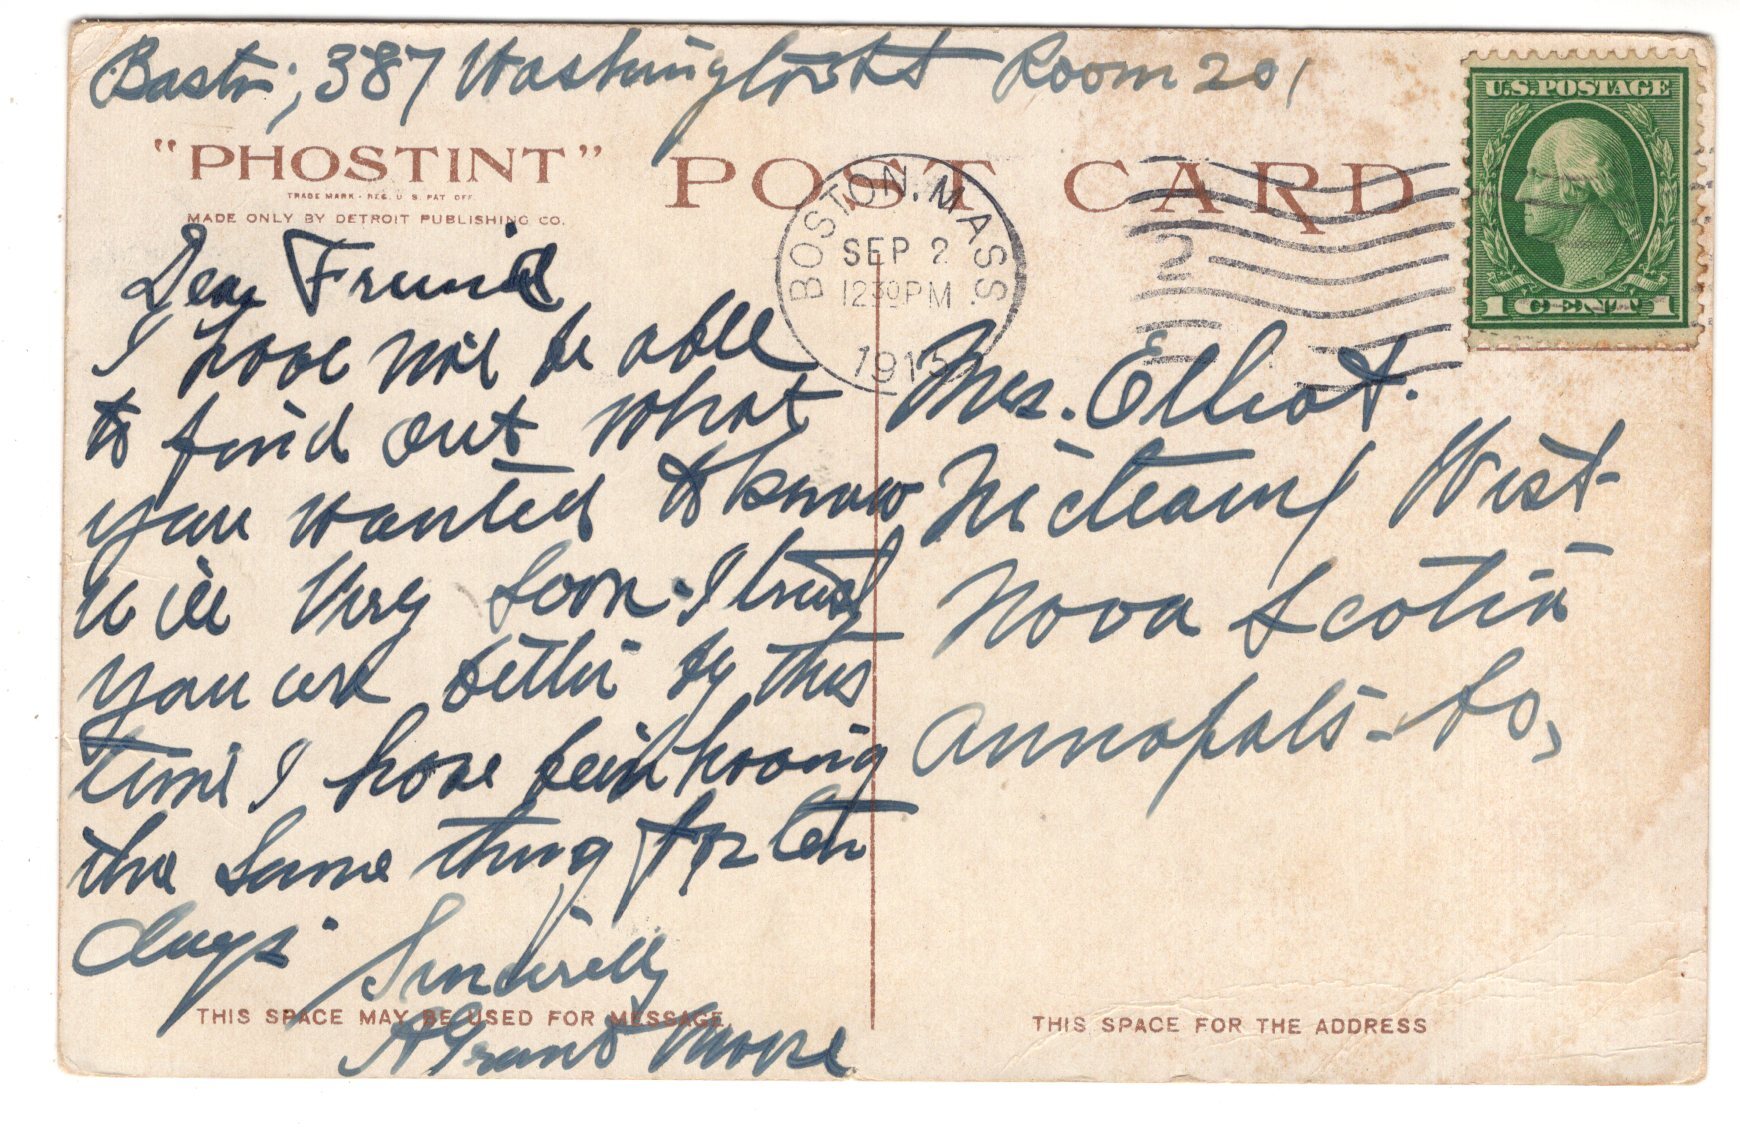 Boston, 387 Washington St Room 201
"PHOSTINT"
TRADE MARK - REG. U S PAT OFF.
MADE ONLY BY DETROIT PUBLISHING CO.
POST CARD
U.S. POSTAGE
1 CENT 1
BOSTON, MASS.
SEP 2
12 30 PM
1915
2
Dear Friend
I have not be able
to find out what
you wanted to know
will Very soon. I trust
you are better by this
time I have been having
the same thing for ten
days.
Sincerelly
A Grant Moore
Mrs. Elliot.
Nicteaux West
Nova Scotia
Annapols - Co,
THIS SPACE MAY BE USED FOR MESSAGE
THIS SPACE FOR THE ADDRESS